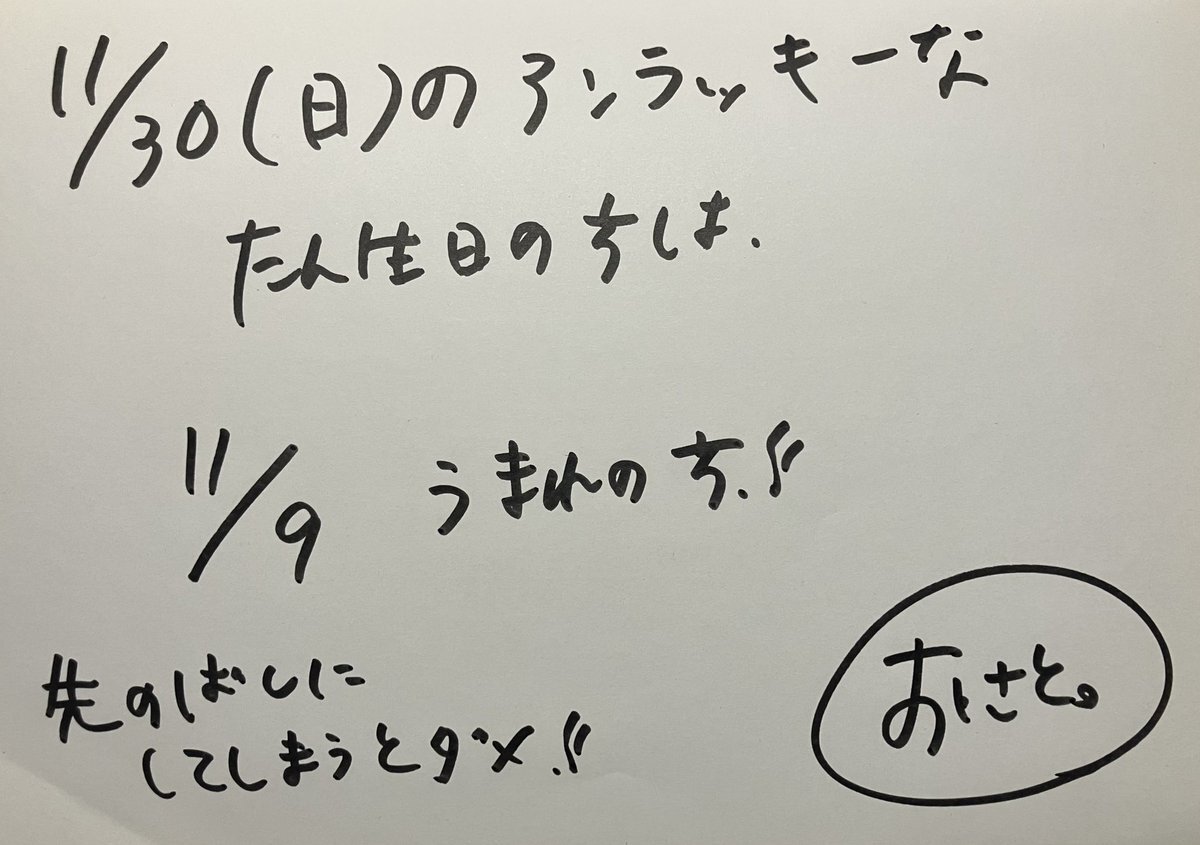 11/30(日)のアンラッキーな
たん生日の方は.
11/9 うまれの方.!!
先のばしに
してしまうとダメ.!!
おさと。